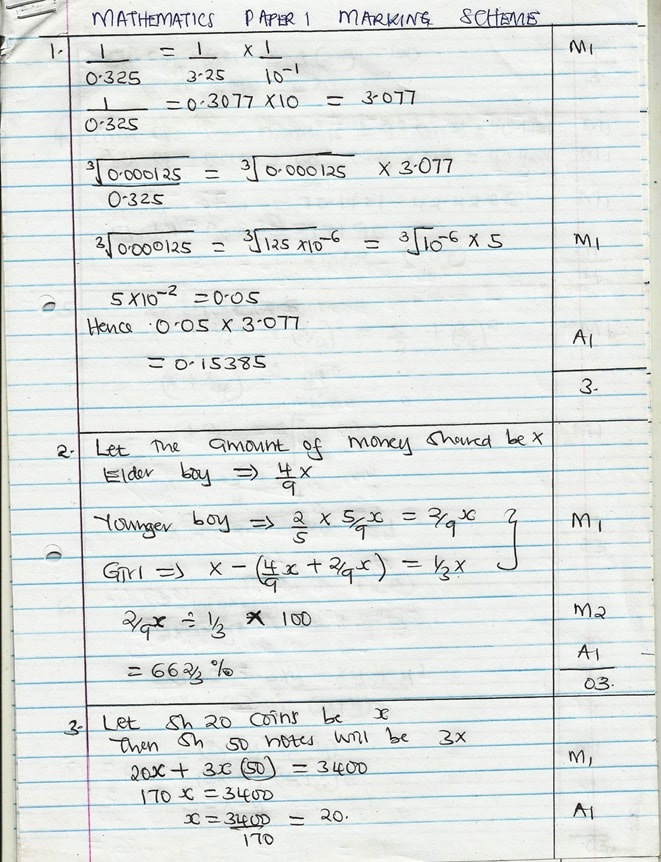 MATHEMATICS PAPER 1 MARKING SCHEME
1. 1/0.325 = 1/3.25 × 1/10⁻¹ M1
1/0.325 = 0.3077 × 10 = 3.077
∛0.000125/0.325 = ∛0.000125 × 3.077
∛0.000125 = ∛125 × 10⁻⁶ = ∛10⁻⁶ × 5 M1
5 × 10⁻² = 0.05
Hence 0.05 × 3.077
= 0.15385 A1
3.
2. Let the amount of money shared be x
Elder boy ⇒ 4/9 x
Younger boy ⇒ 2/5 × 5/9 x = 2/9 x M1
Girl ⇒ x − (4/9 x + 2/9 x) = 1/3 x
2/9 x ÷ 1/3 × 100 M2
= 66 2/3 % A1
03.
3. Let Sh 20 coins be x
Then Sh 50 notes will be 3x
20x + 3x(50) = 3400 M1
170x = 3400
x = 3400/170 = 20. A1